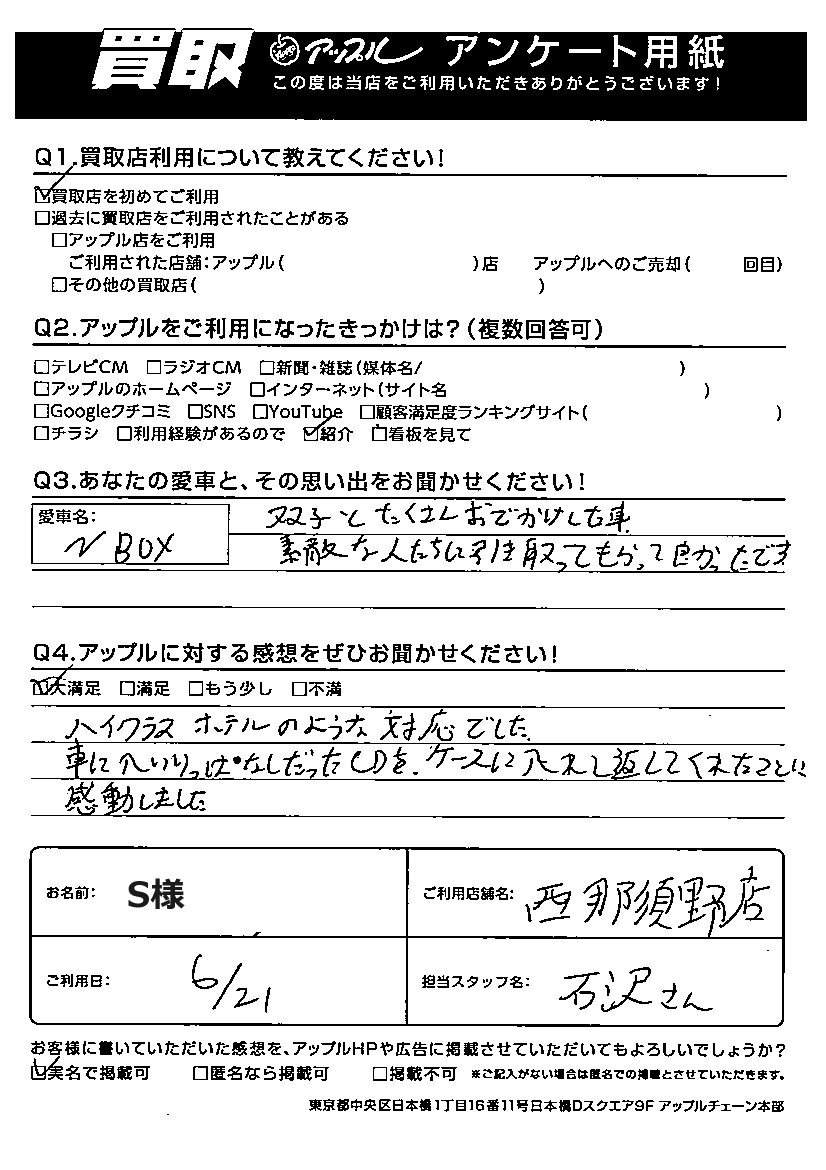 買取 アップル アンケート用紙
この度は当店をご利用いただきありがとうございます!
Q1.買取店利用について教えてください!
☑買取店を初めてご利用
□過去に買取店をご利用されたことがある
□アップル店をご利用
ご利用された店舗:アップル( )店 アップルへのご売却( 回目)
□その他の買取店( )
Q2.アップルをご利用になったきっかけは?(複数回答可)
□テレビCM □ラジオCM □新聞・雑誌(媒体名/ )
□アップルのホームページ □インターネット(サイト名 )
□Googleクチコミ □SNS □YouTube □顧客満足度ランキングサイト( )
□チラシ □利用経験があるので ☑紹介 □看板を見て
Q3.あなたの愛車と、その思い出をお聞かせください!
愛車名:
N BOX
双子とたくさんおでかけした車
素敵な人たちに引き取ってもらって良かったです
Q4.アップルに対する感想をぜひお聞かせください!
☑大満足 □満足 □もう少し □不満
ハイクラスホテルのような対応でした
車に入いりっぱなしだったCDを、ケースに入れし返してくれたことに
感動しました
お名前: S様 ご利用店舗名: 西那須野店
ご利用日: 6/21 担当スタッフ名: 石沢さん
お客様に書いていただいた感想を、アップルHPや広告に掲載させていただいてもよろしいでしょうか?
☑実名で掲載可 □匿名なら掲載可 □掲載不可 ※ご記入がない場合は匿名での掲載とさせていただきます。
東京都中央区日本橋1丁目16番11号日本橋Dスクエア9F アップルチェーン本部